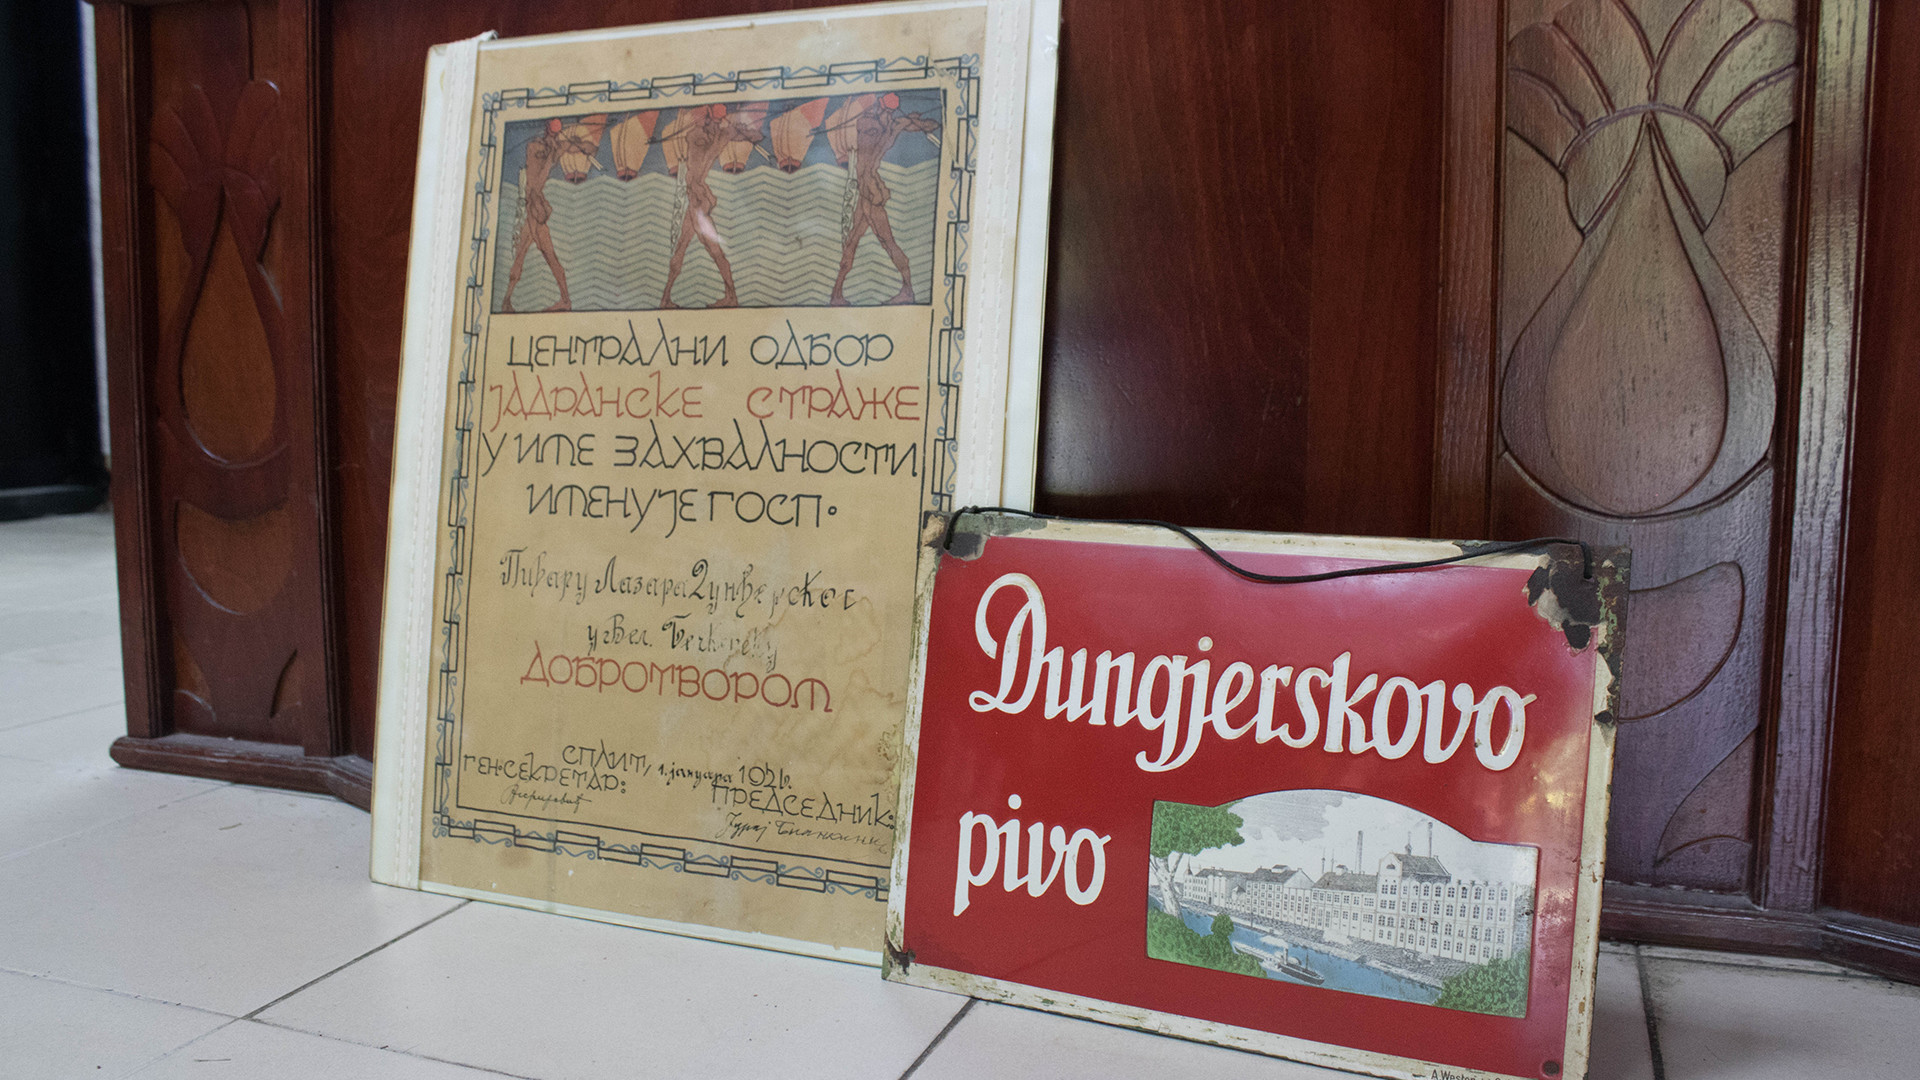 ЦЕНТРАЛНИ ОДБОР
ЈАДРАНСКЕ СТРАЖЕ
У ИМЕ ЗАХВАЛНОСТИ
ИМЕНУЈЕ ГОСП.
Пивару Лазара Дунђерског
у Вел. Бечкереку
ДОБРОТВОРОМ
СПЛИТ, 1. јануара 192
ГЕН.СЕКРЕТАР:
ПРЕДСЕДНИК:
Dungjerskovo
pivo